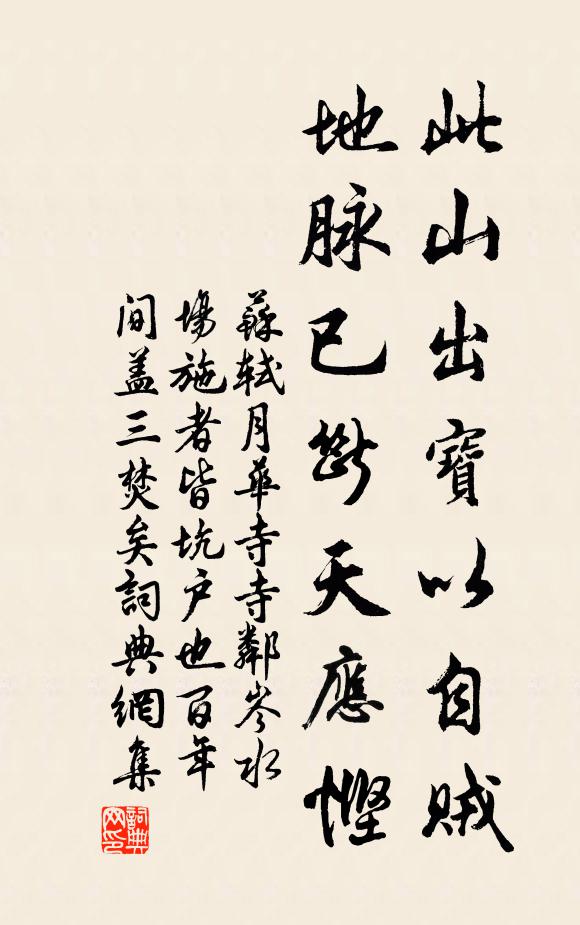 此山出寶以自賊
地脉已斷天應慳
蘇軾月華寺寺鄰岑水
場施者皆坑户也百年
間盖三焚矣詞典網集
詞典
网印